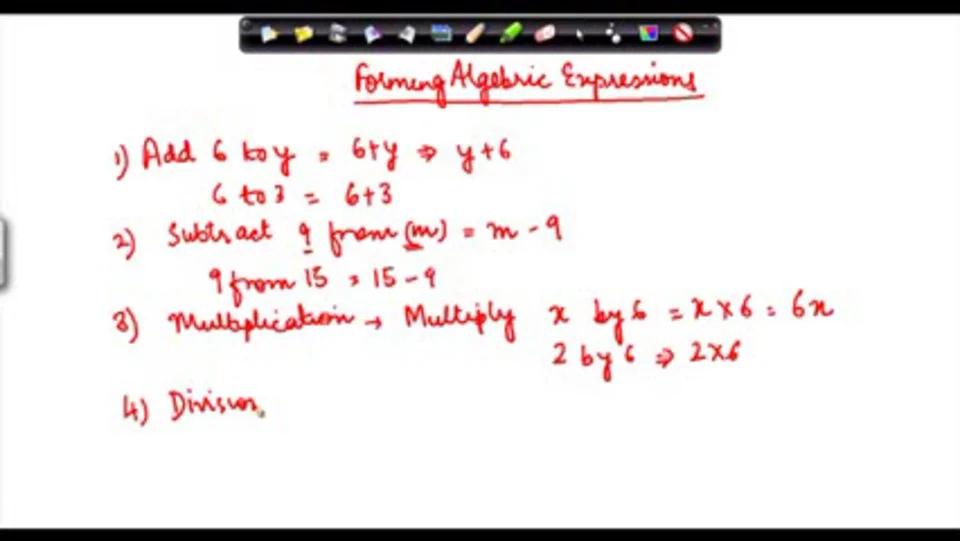 Forming Algebric Expressions
1) Add 6 to y = 6+y ⇒ y+6
6 to 3 = 6+3
2) Subtract 9 from (m) = m - 9
9 from 15 = 15 - 9
3) Multiplication → Multiply x by 6 = x × 6 = 6x
2 by 6 ⇒ 2×6
4) Division